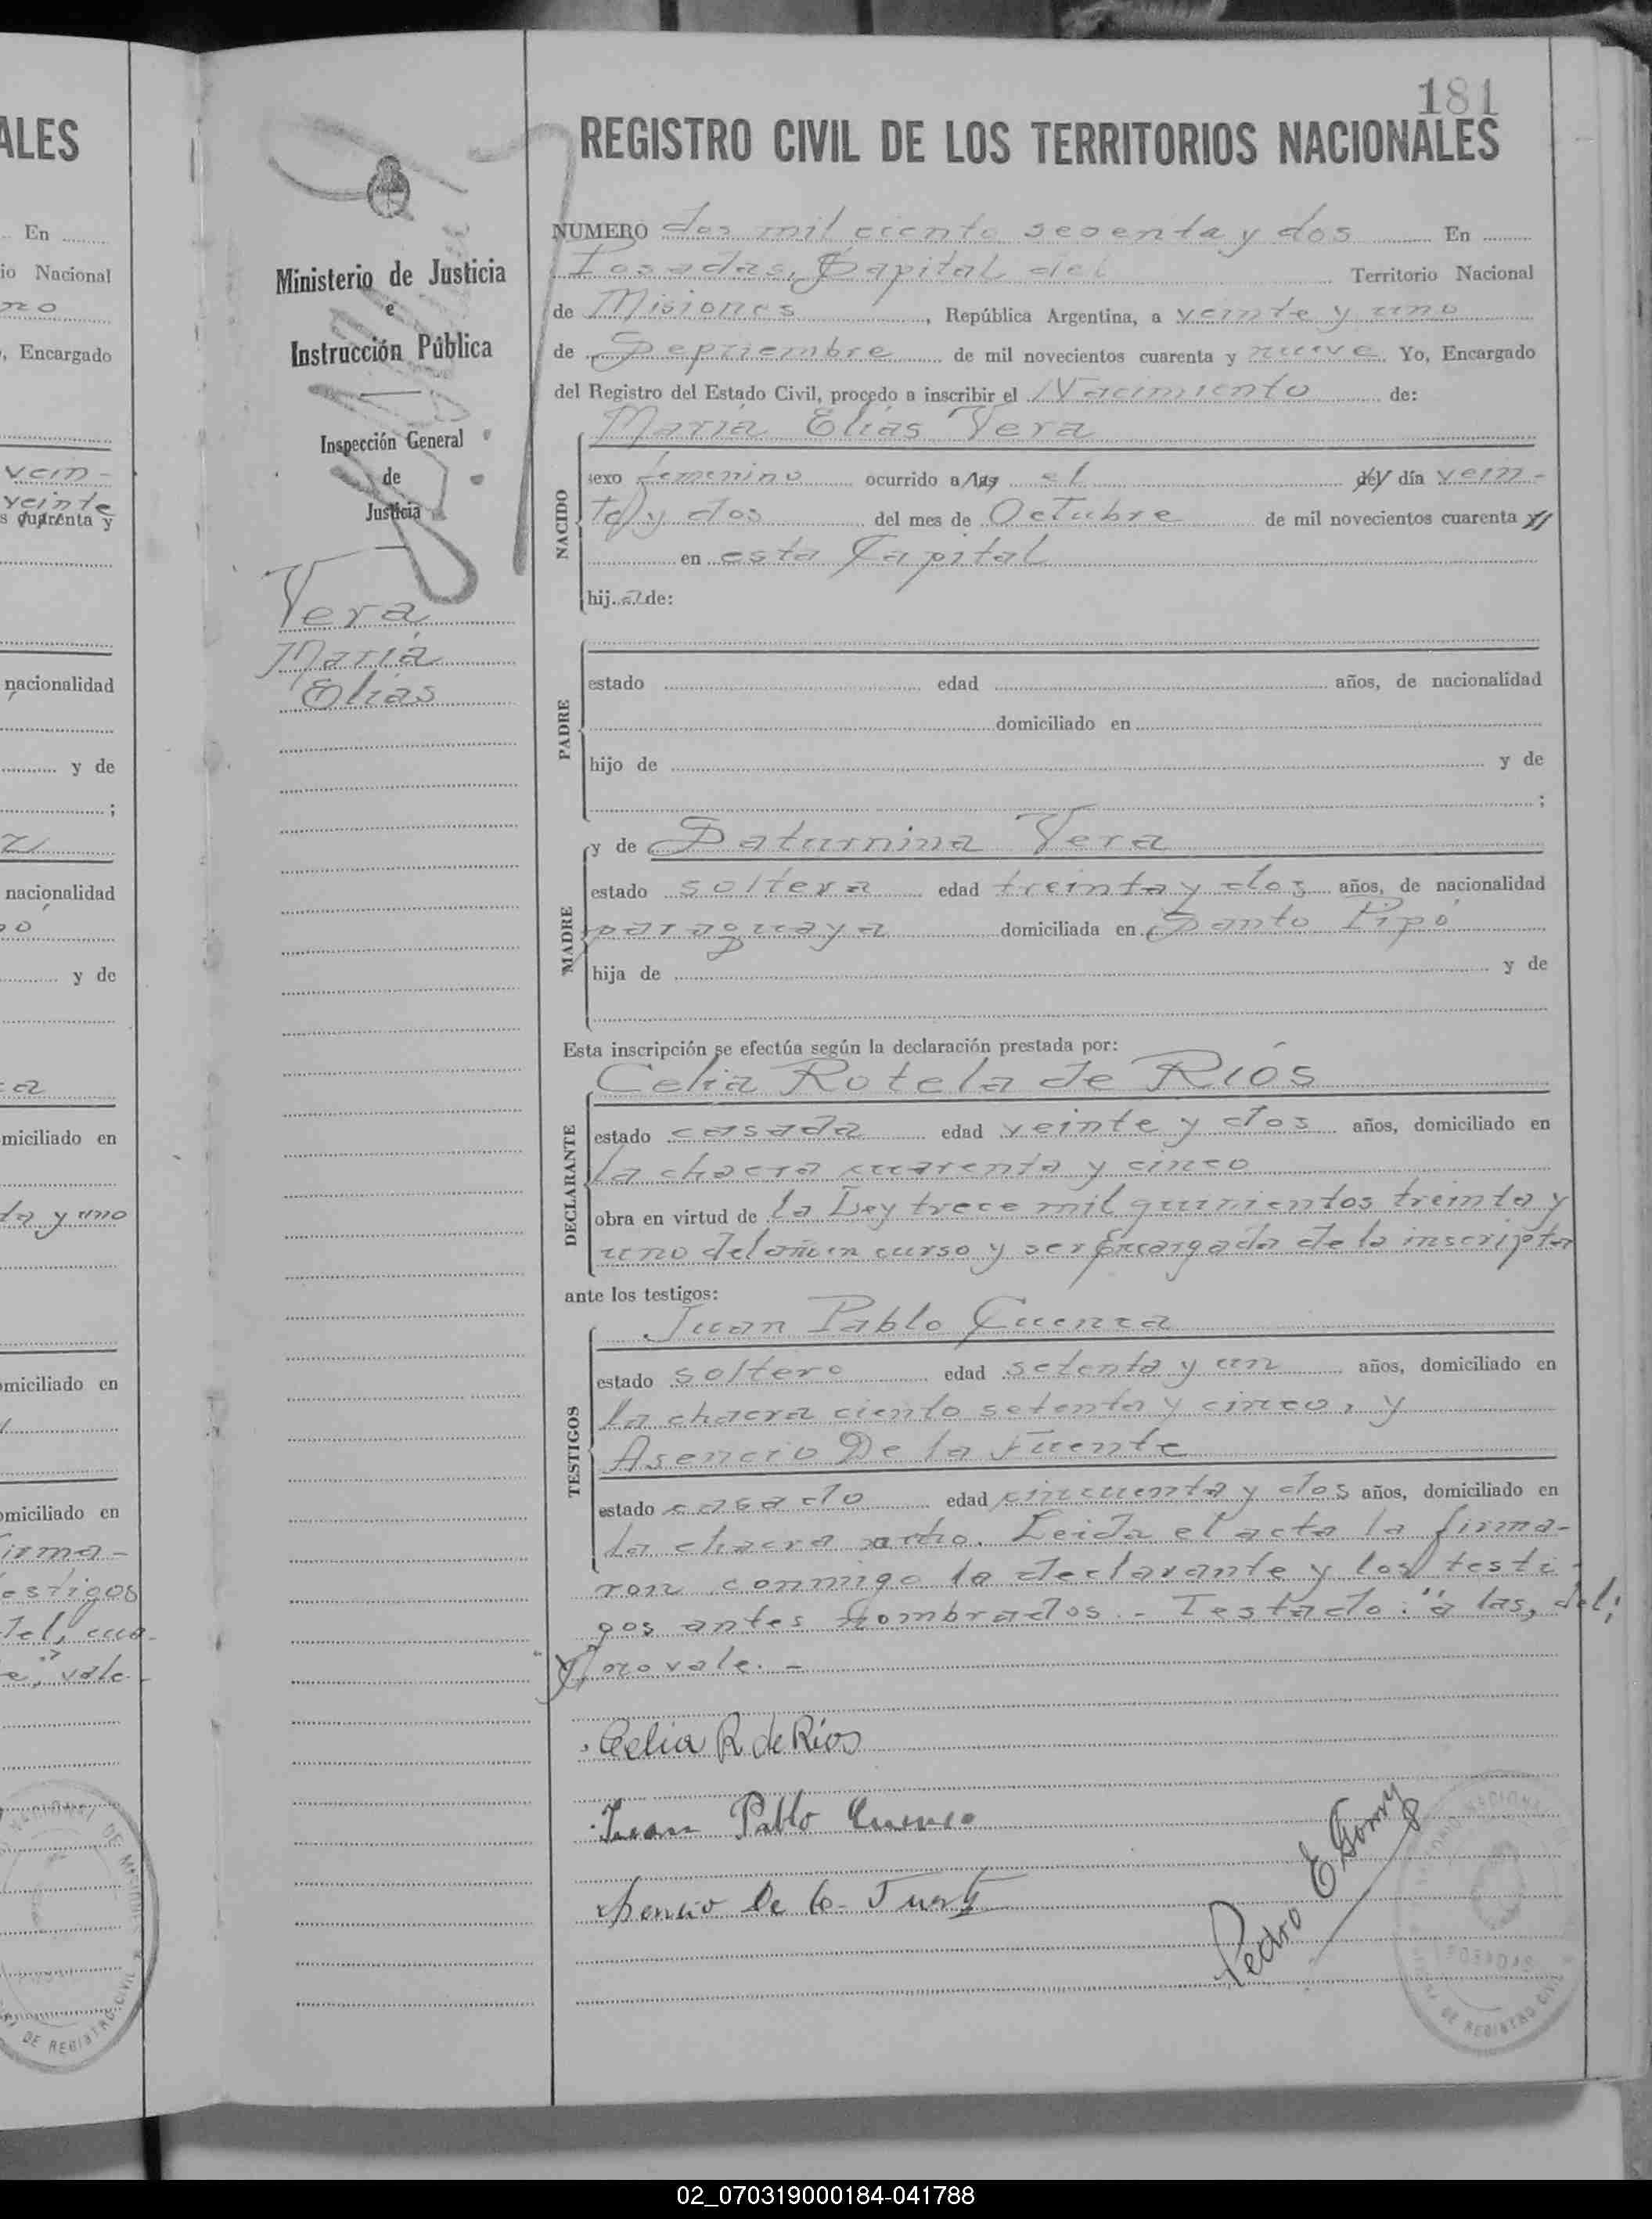 ALES
En
io Nacional
no
, Encargado
vein-
veinte
s cuarenta y
nacionalidad
y de
;
z
nacionalidad
ó
y de
a
miciliado en
ta y uno
omiciliado en
omiciliado en
irma-
estigos
del, cua-
e", vale-
DE REGISTRO CIVIL
Ministerio de Justicia
e
Instrucción Pública
Inspección General
de
Justicia
Vera
María
Elías
181
REGISTRO CIVIL DE LOS TERRITORIOS NACIONALES
NUMERO dos mil ciento sesenta y dos En
Posadas, Capital del Territorio Nacional
de Misiones, República Argentina, a veinte y uno
de Septiembre de mil novecientos cuarenta y nueve. Yo, Encargado
del Registro del Estado Civil, procedo a inscribir el Nacimiento de:
María Elías Vera
NACIDO
sexo femenino ocurrido a las el del día vein-
te y dos del mes de Octubre de mil novecientos cuarenta y
en esta Capital
hija de:
PADRE
estado edad años, de nacionalidad
domiciliado en
hijo de y de
;
y de Saturnina Vera
MADRE
estado soltera edad treinta y dos años, de nacionalidad
paraguaya domiciliada en Santo Pipó
hija de y de
Esta inscripción se efectúa según la declaración prestada por:
Celia Rotela de Ríos
DECLARANTE
estado casada edad veinte y dos años, domiciliado en
la chacra cuarenta y cinco
obra en virtud de la Ley trece mil quinientos treinta y
uno del año en curso y ser Encargada de la inscripta
ante los testigos:
Juan Pablo Cuenca
TESTIGOS
estado soltero edad setenta y un años, domiciliado en
la chacra ciento setenta y cinco, y
Asencio De la Fuente
estado casado edad cincuenta y dos años, domiciliado en
la chacra ocho. Leida el acta la firma-
ron conmigo la declarante y los testi-
gos antes nombrados.- Testado: "a las, del;
y" no vale.-
Celia R. de Ríos
Juan Pablo Cuenca
Asencio De la Fuente
Pedro E.
POSADAS
DE REGISTRO CIVIL
02_070319000184-041788